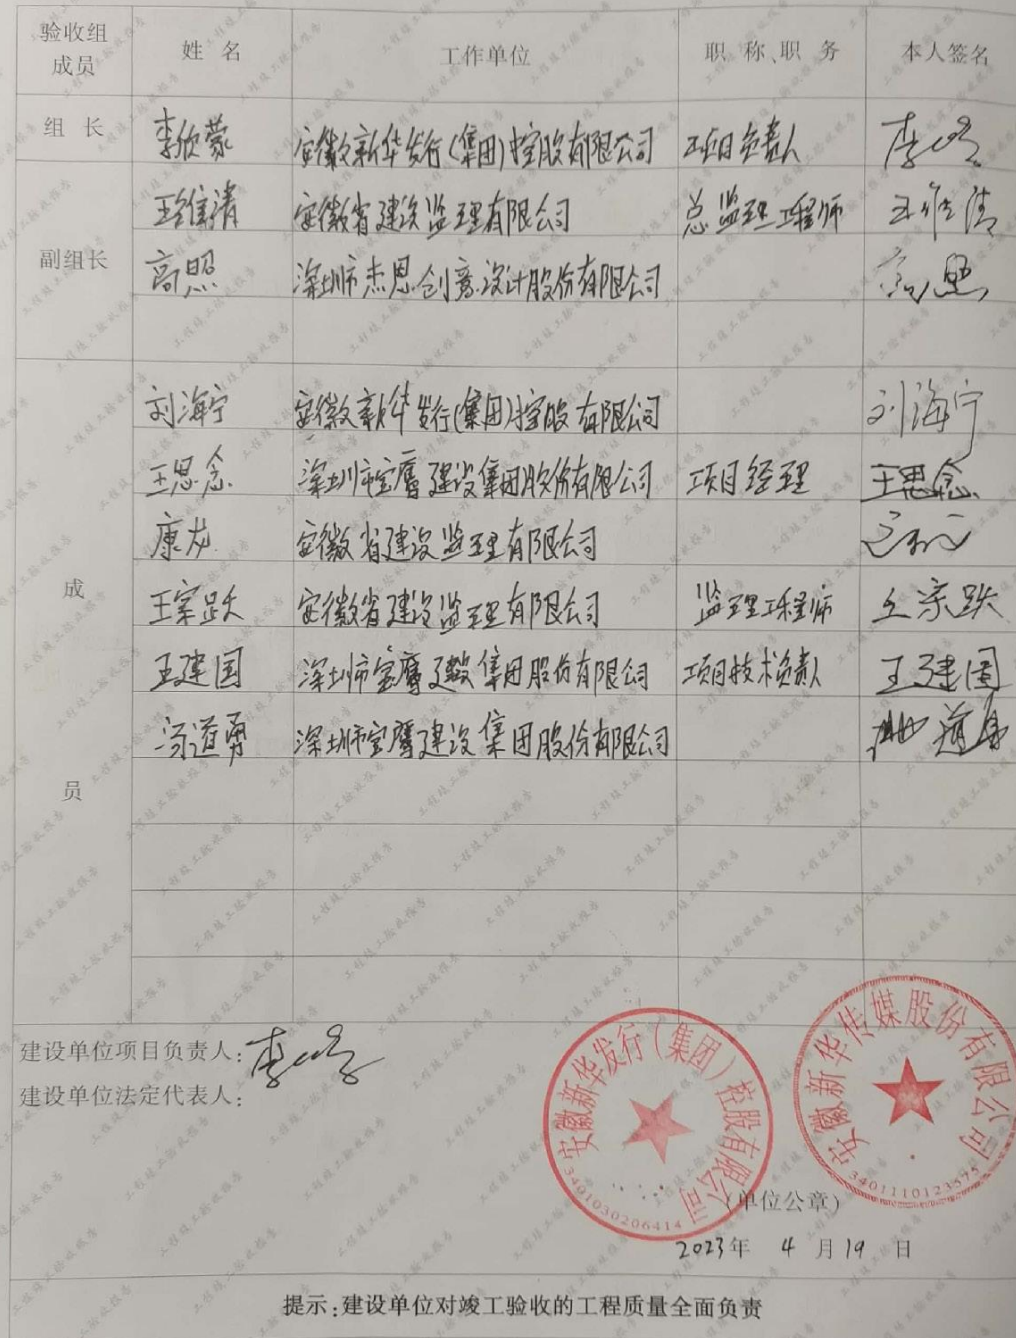 验收组成员 姓名 工作单位 职称、职务 本人签名
组长 李欣蒙 安徽新华发行(集团)控股有限公司 项目负责人
王维清 安徽省建设监理有限公司 总监理工程师 王维清
副组长 高照 深圳市杰恩创意设计股份有限公司 高照
刘海宁 安徽新华发行(集团)控股有限公司 刘海宁
王思念 深圳市宝鹰建设集团股份有限公司 项目经理 王思念
康龙 安徽省建设监理有限公司
成 王宗跃 安徽省建设监理有限公司 监理工程师 王宗跃
王建国 深圳市宝鹰建设集团股份有限公司 项目技术负责人 王建国
员 冯道勇 深圳市宝鹰建设集团股份有限公司
建设单位项目负责人:
建设单位法定代表人:
安徽新华发行(集团)控股有限公司
3401030206414
安徽新华传媒股份有限公司
3401110123575
(单位公章)
2023年 4月19日
提示:建设单位对竣工验收的工程质量全面负责
工程竣工验收报告